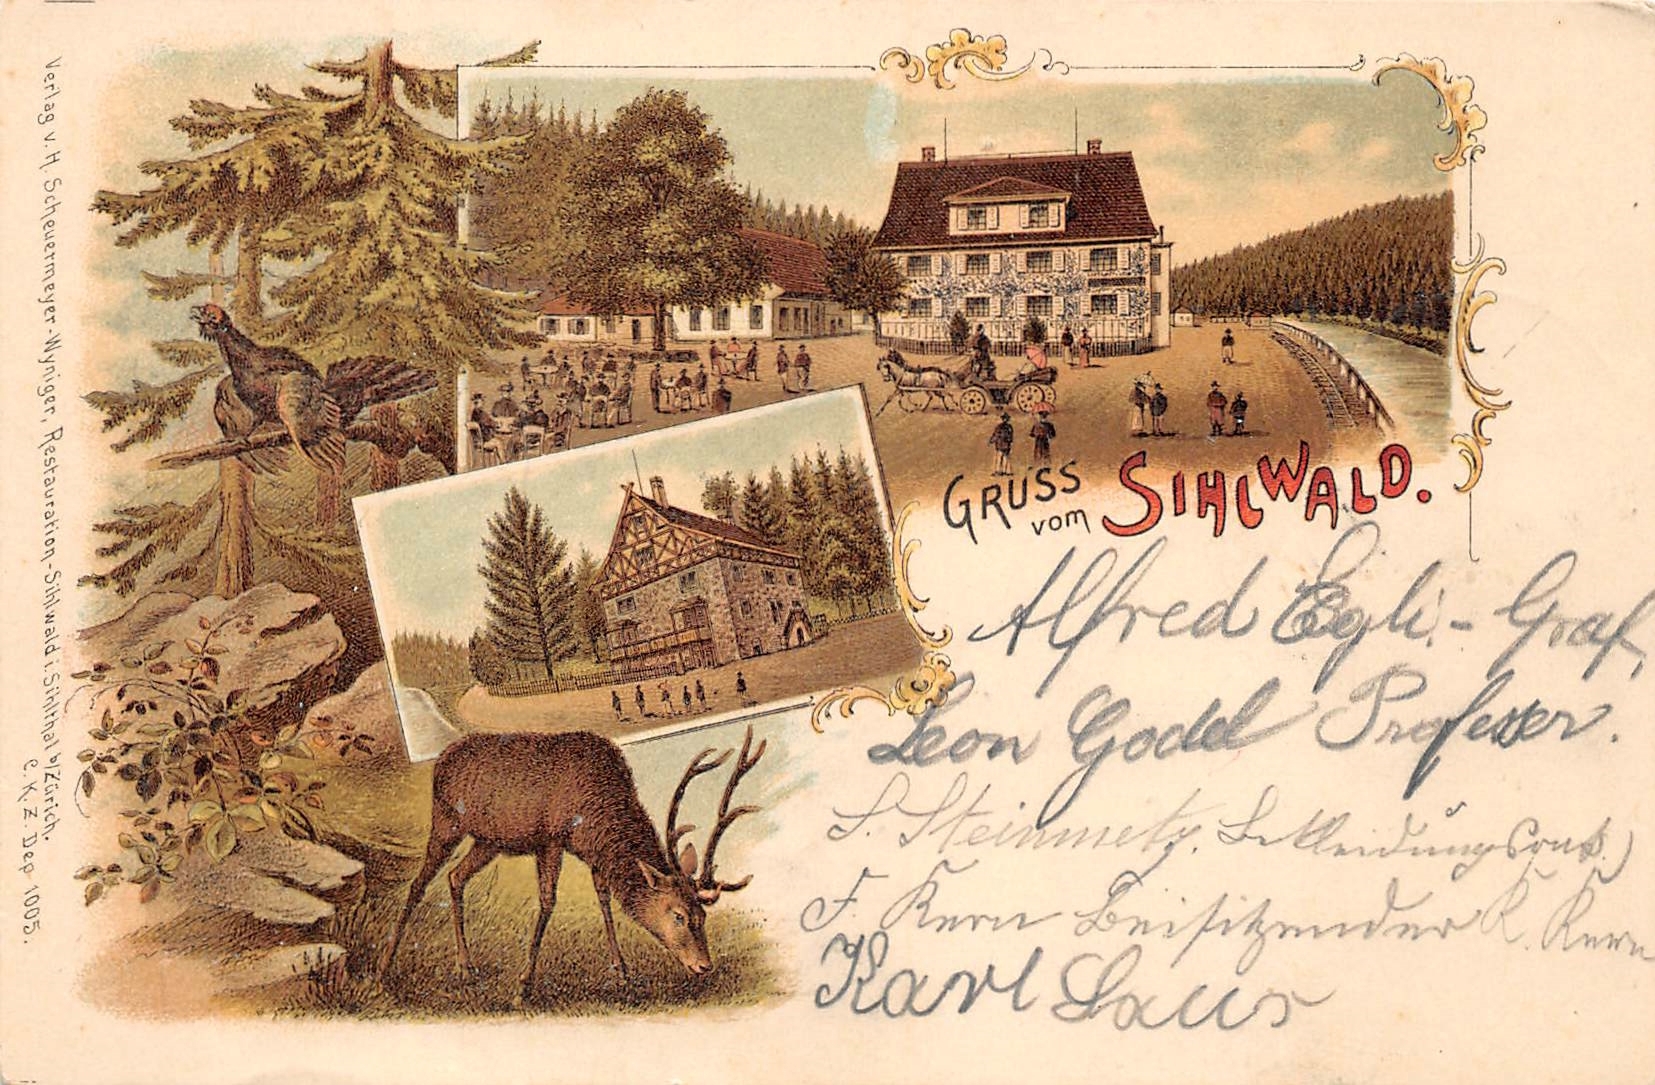 Verlag v. H. Scheuermeyer-Wyniger, Restauration-Sihlwald i. Sihlthal b/Zürich.
C. K. Z. Dep 1005.
GRUSS
vom SIHLWALD.
Alfred Egli-Graf,
Leon Godel Professer.
S. Steinmetz,
F. Kern Beisitzender K. Kern
Karl